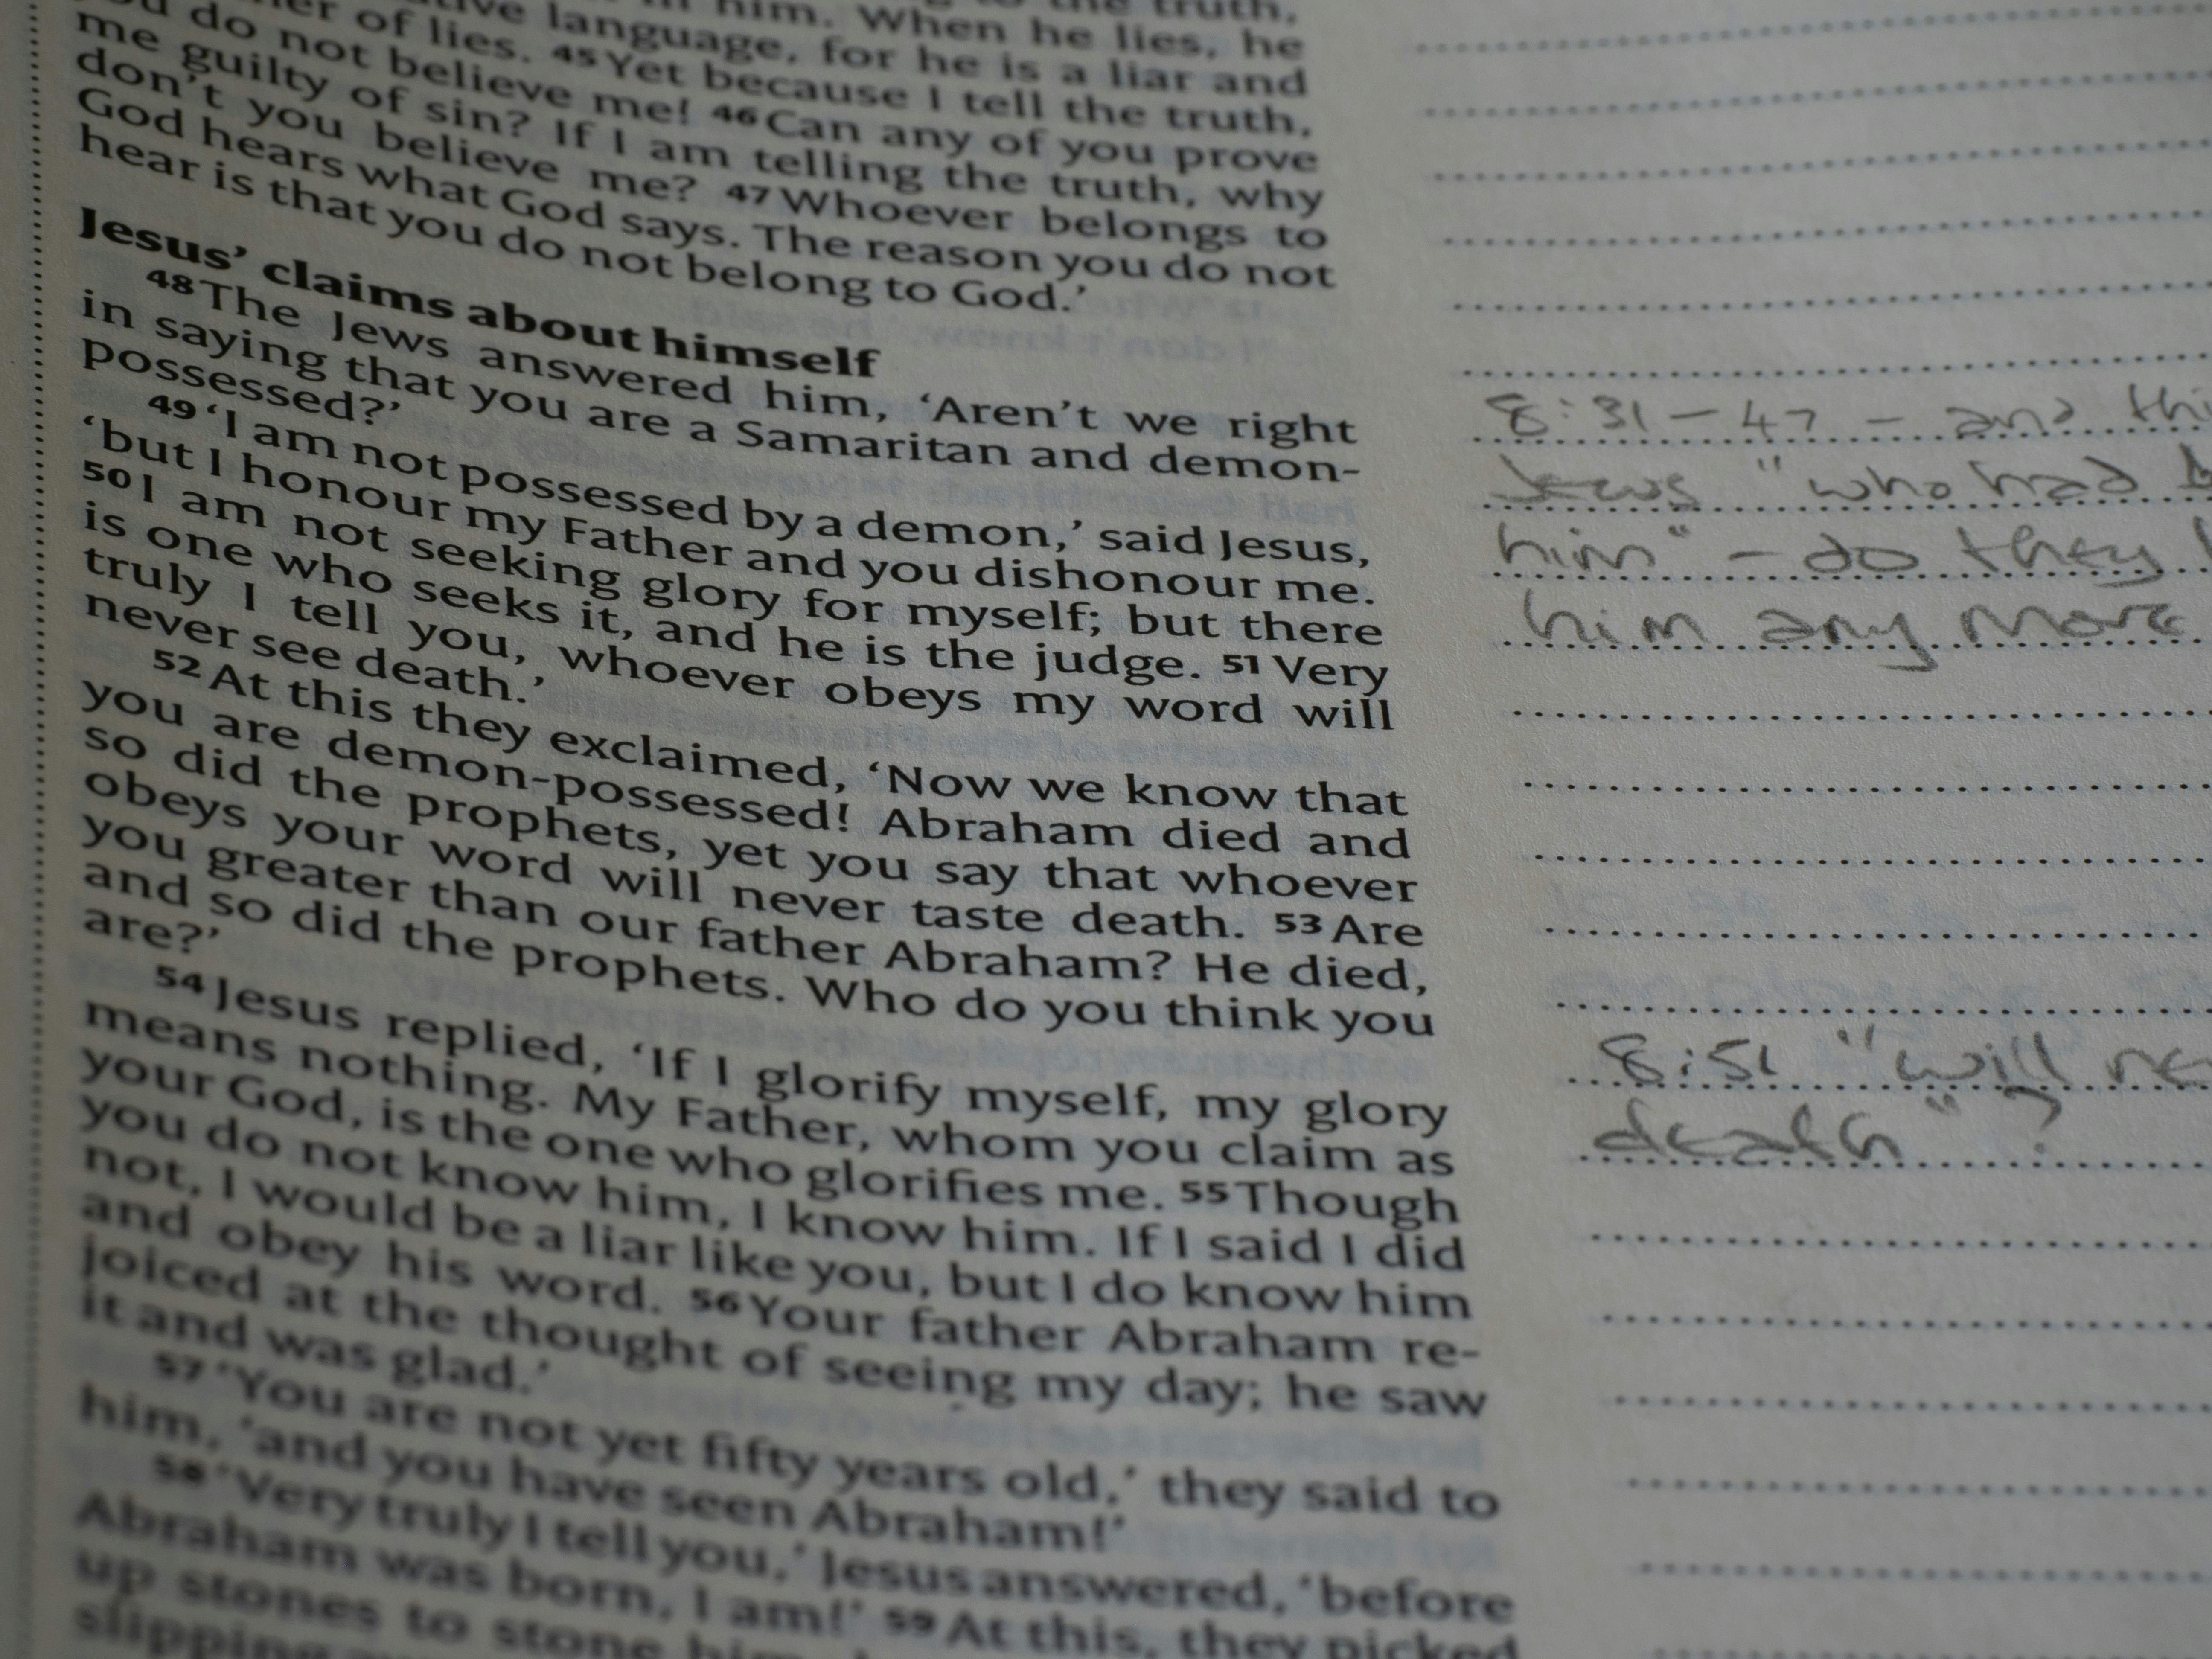 the truth,
him. When he lies, he
language, for he is a liar and
of lies. 45 Yet because I tell the truth,
do not believe me! 46 Can any of you prove
me guilty of sin? If I am telling the truth, why
don't you believe me? 47 Whoever belongs to
God hears what God says. The reason you do not
hear is that you do not belong to God.'
Jesus' claims about himself
48 The Jews answered him, 'Aren't we right
in saying that you are a Samaritan and demon-
possessed?'
49 'I am not possessed by a demon,' said Jesus,
'but I honour my Father and you dishonour me.
50 I am not seeking glory for myself; but there
is one who seeks it, and he is the judge. 51 Very
truly I tell you, whoever obeys my word will
never see death.'
52 At this they exclaimed, 'Now we know that
you are demon-possessed! Abraham died and
so did the prophets, yet you say that whoever
obeys your word will never taste death. 53 Are
you greater than our father Abraham? He died,
and so did the prophets. Who do you think you
are?'
54 Jesus replied, 'If I glorify myself, my glory
means nothing. My Father, whom you claim as
your God, is the one who glorifies me. 55 Though
you do not know him, I know him. If I said I did
not, I would be a liar like you, but I do know him
and obey his word. 56 Your father Abraham re-
joiced at the thought of seeing my day; he saw
it and was glad.'
57 'You are not yet fifty years old,' they said to
him, 'and you have seen Abraham!'
58 'Very truly I tell you,' Jesus answered, 'before
Abraham was born, I am!' 59 At this, they picked
up stones to stone
slipping
8:31-47 - and
Jews "who had
him" - do they
him any more
8:51 "will
death"?